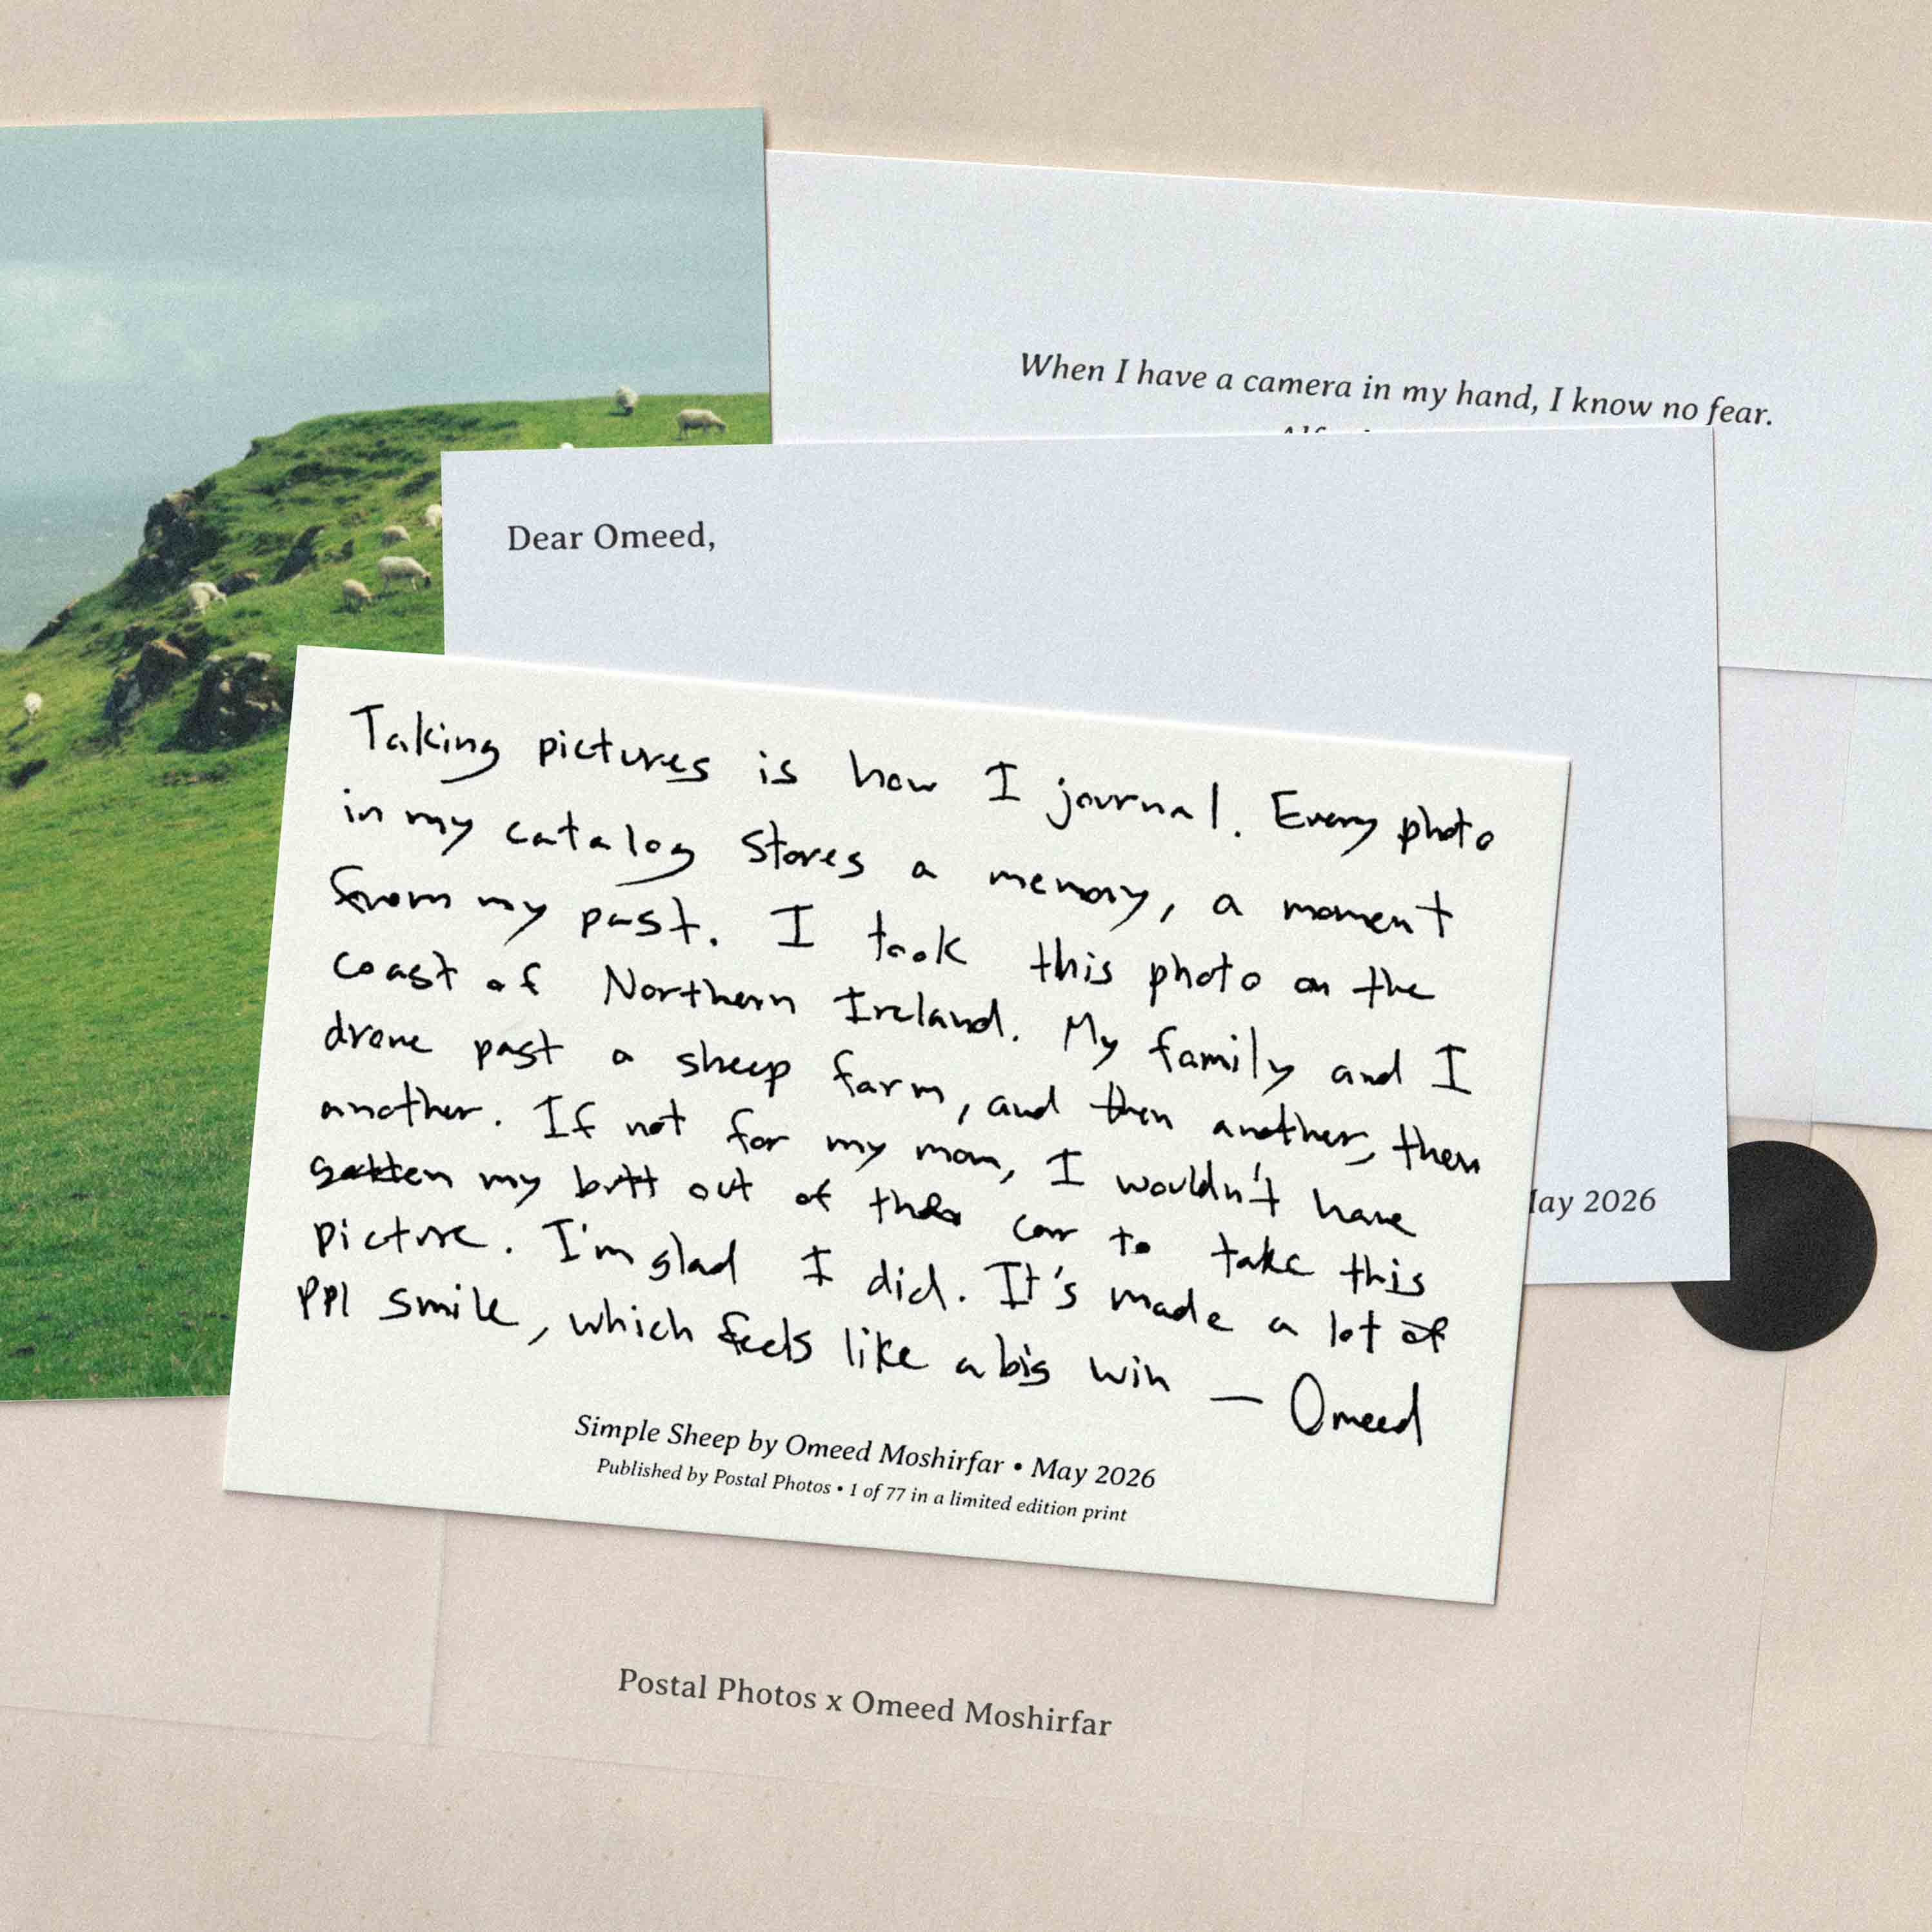 When I have a camera in my hand, I know no fear.
Dear Omeed,
Taking pictures is how I journal. Every photo
in my catalog stores a memory, a moment
from my past. I took this photo on the
coast of Northern Ireland. My family and I
drove past a sheep farm, and then another, then
another. If not for my mom, I wouldn't have
gotten my butt out of the car to take this
picture. I'm glad I did. It's made a lot of
ppl smile, which feels like a big win — Omeed
Simple Sheep by Omeed Moshirfar • May 2026
Published by Postal Photos • 1 of 77 in a limited edition print
May 2026
Postal Photos x Omeed Moshirfar